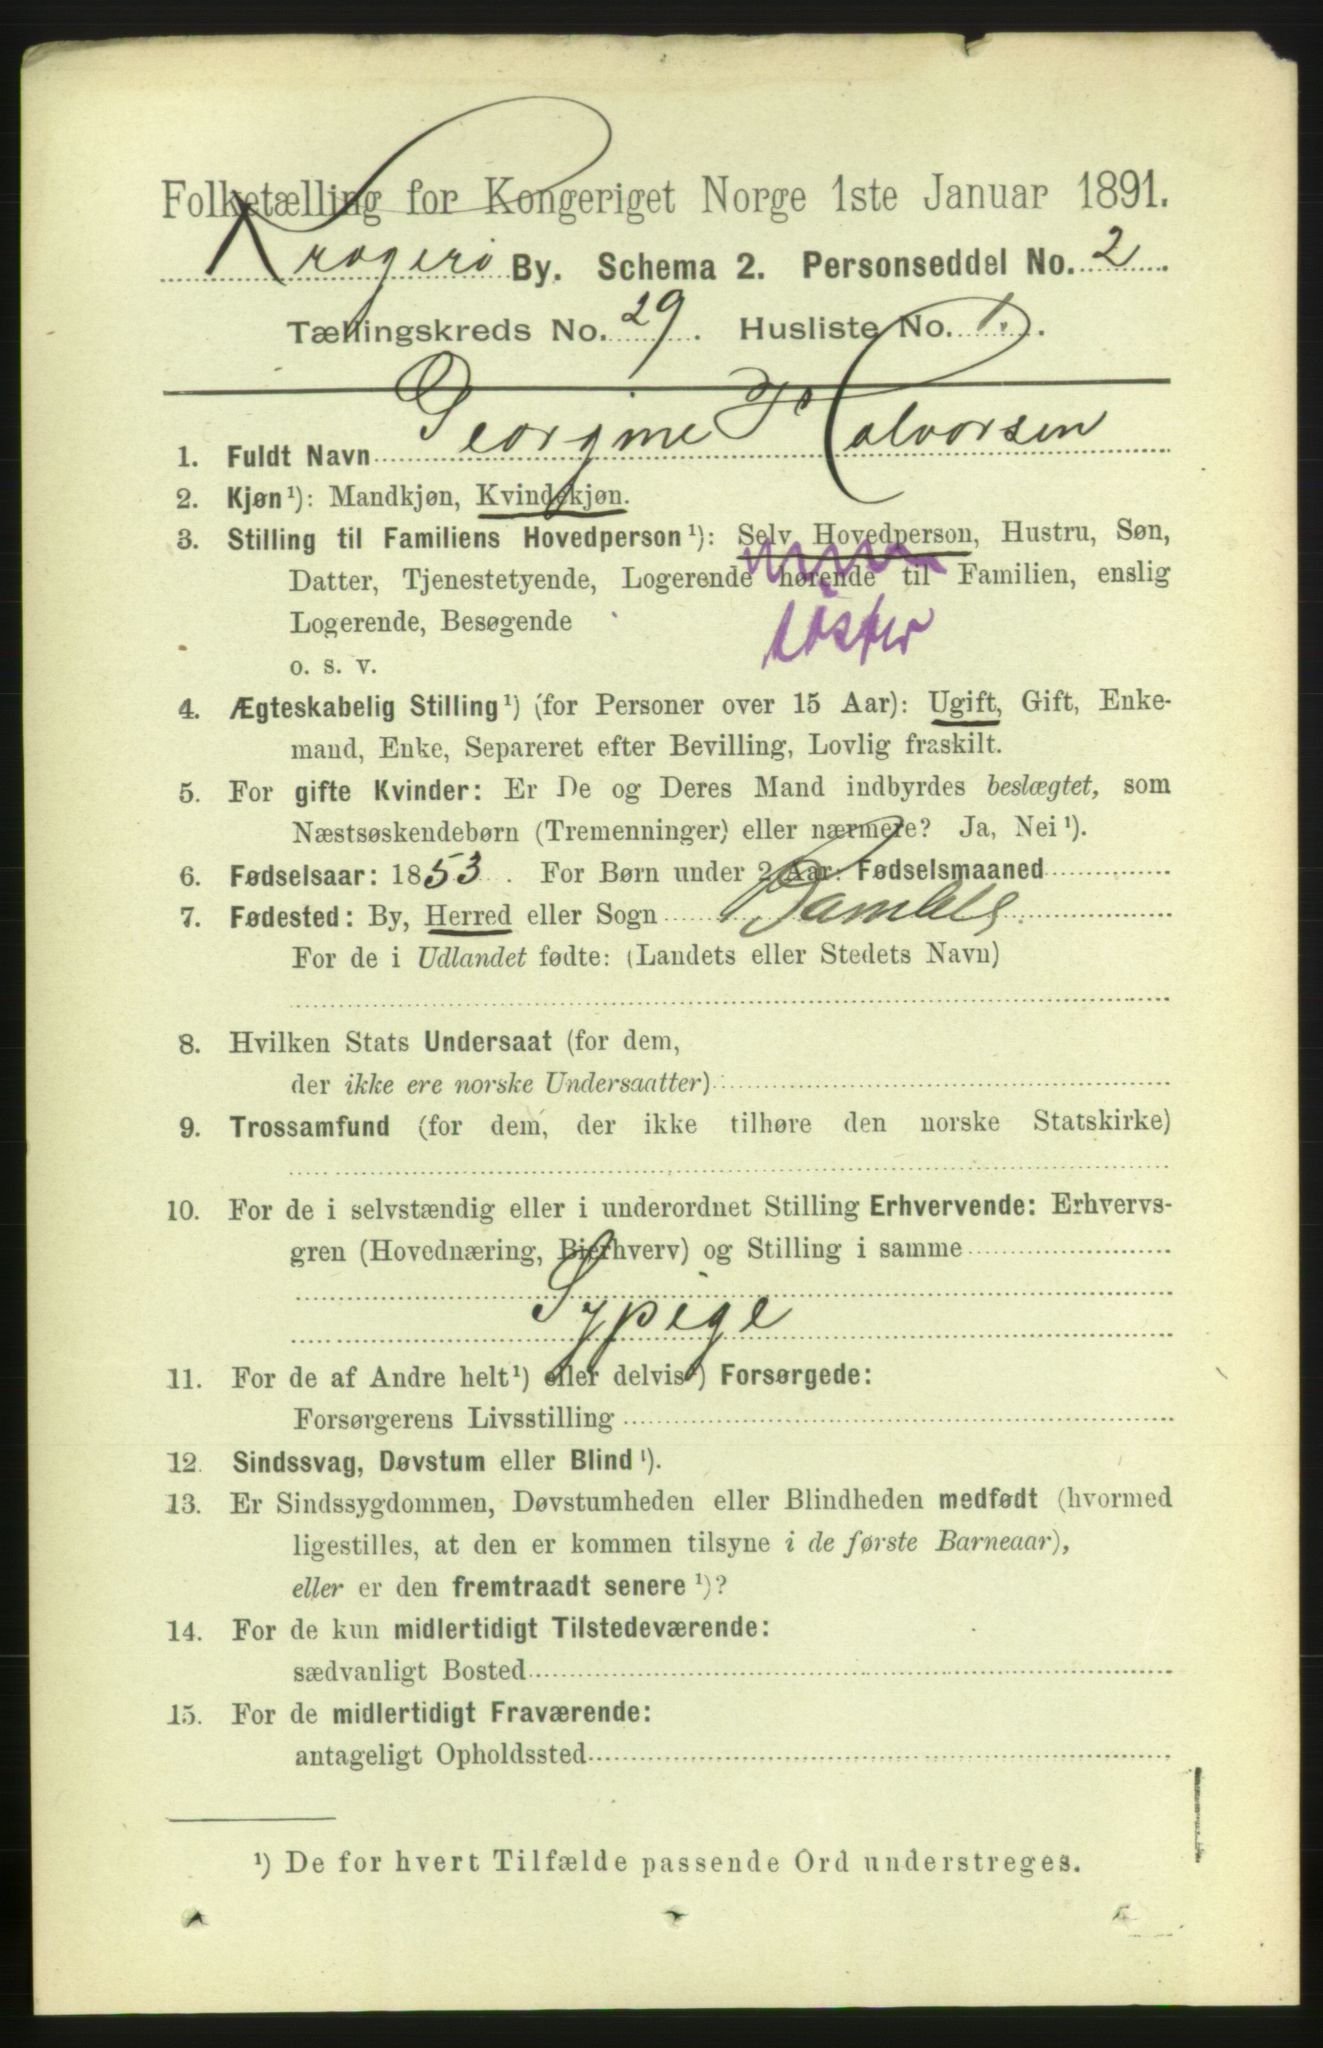 Folketælling for Kongeriget Norge 1ste Januar 1891.
Kragerø By. Schema 2. Personseddel No. 2.
Tællingskreds No. 29. Husliste No. 1.
1. Fuldt Navn Georgine Halvorsen
2. Kjøn ¹): Mandkjøn, Kvindekjøn.
3. Stilling til Familiens Hovedperson ¹): Selv Hovedperson, Hustru, Søn,
Datter, Tjenestetyende, Logerende hørende til Familien, enslig
Logerende, Besøgende
søster
o. s. v.
4. Ægteskabelig Stilling ¹) (for Personer over 15 Aar): Ugift, Gift, Enke-
mand, Enke, Separeret efter Bevilling, Lovlig fraskilt.
5. For gifte Kvinder: Er De og Deres Mand indbyrdes beslægtet, som
Næstsøskendebørn (Tremenninger) eller nærmere? Ja, Nei ¹).
6. Fødselsaar: 1853. For Børn under 2 Aar: Fødselsmaaned
7. Fødested: By, Herred eller Sogn Bamble
For de i Udlandet fødte: (Landets eller Stedets Navn)
8. Hvilken Stats Undersaat (for dem,
der ikke ere norske Undersaatter)
9. Trossamfund (for dem, der ikke tilhøre den norske Statskirke)
10. For de i selvstændig eller i underordnet Stilling Erhvervende: Erhvervs-
gren (Hovednæring, Bierhverv) og Stilling i samme
Sypige
11. For de af Andre helt ¹) eller delvis ¹) Forsørgede:
Forsørgerens Livsstilling
12. Sindssvag, Døvstum eller Blind ¹).
13. Er Sindssygdommen, Døvstumheden eller Blindheden medfødt (hvormed
ligestilles, at den er kommen tilsyne i de første Barneaar),
eller er den fremtraadt senere ¹)?
14. For de kun midlertidigt Tilstedeværende:
sædvanligt Bosted
15. For de midlertidigt Fraværende:
antageligt Opholdssted
¹) De for hvert Tilfælde passende Ord understreges.